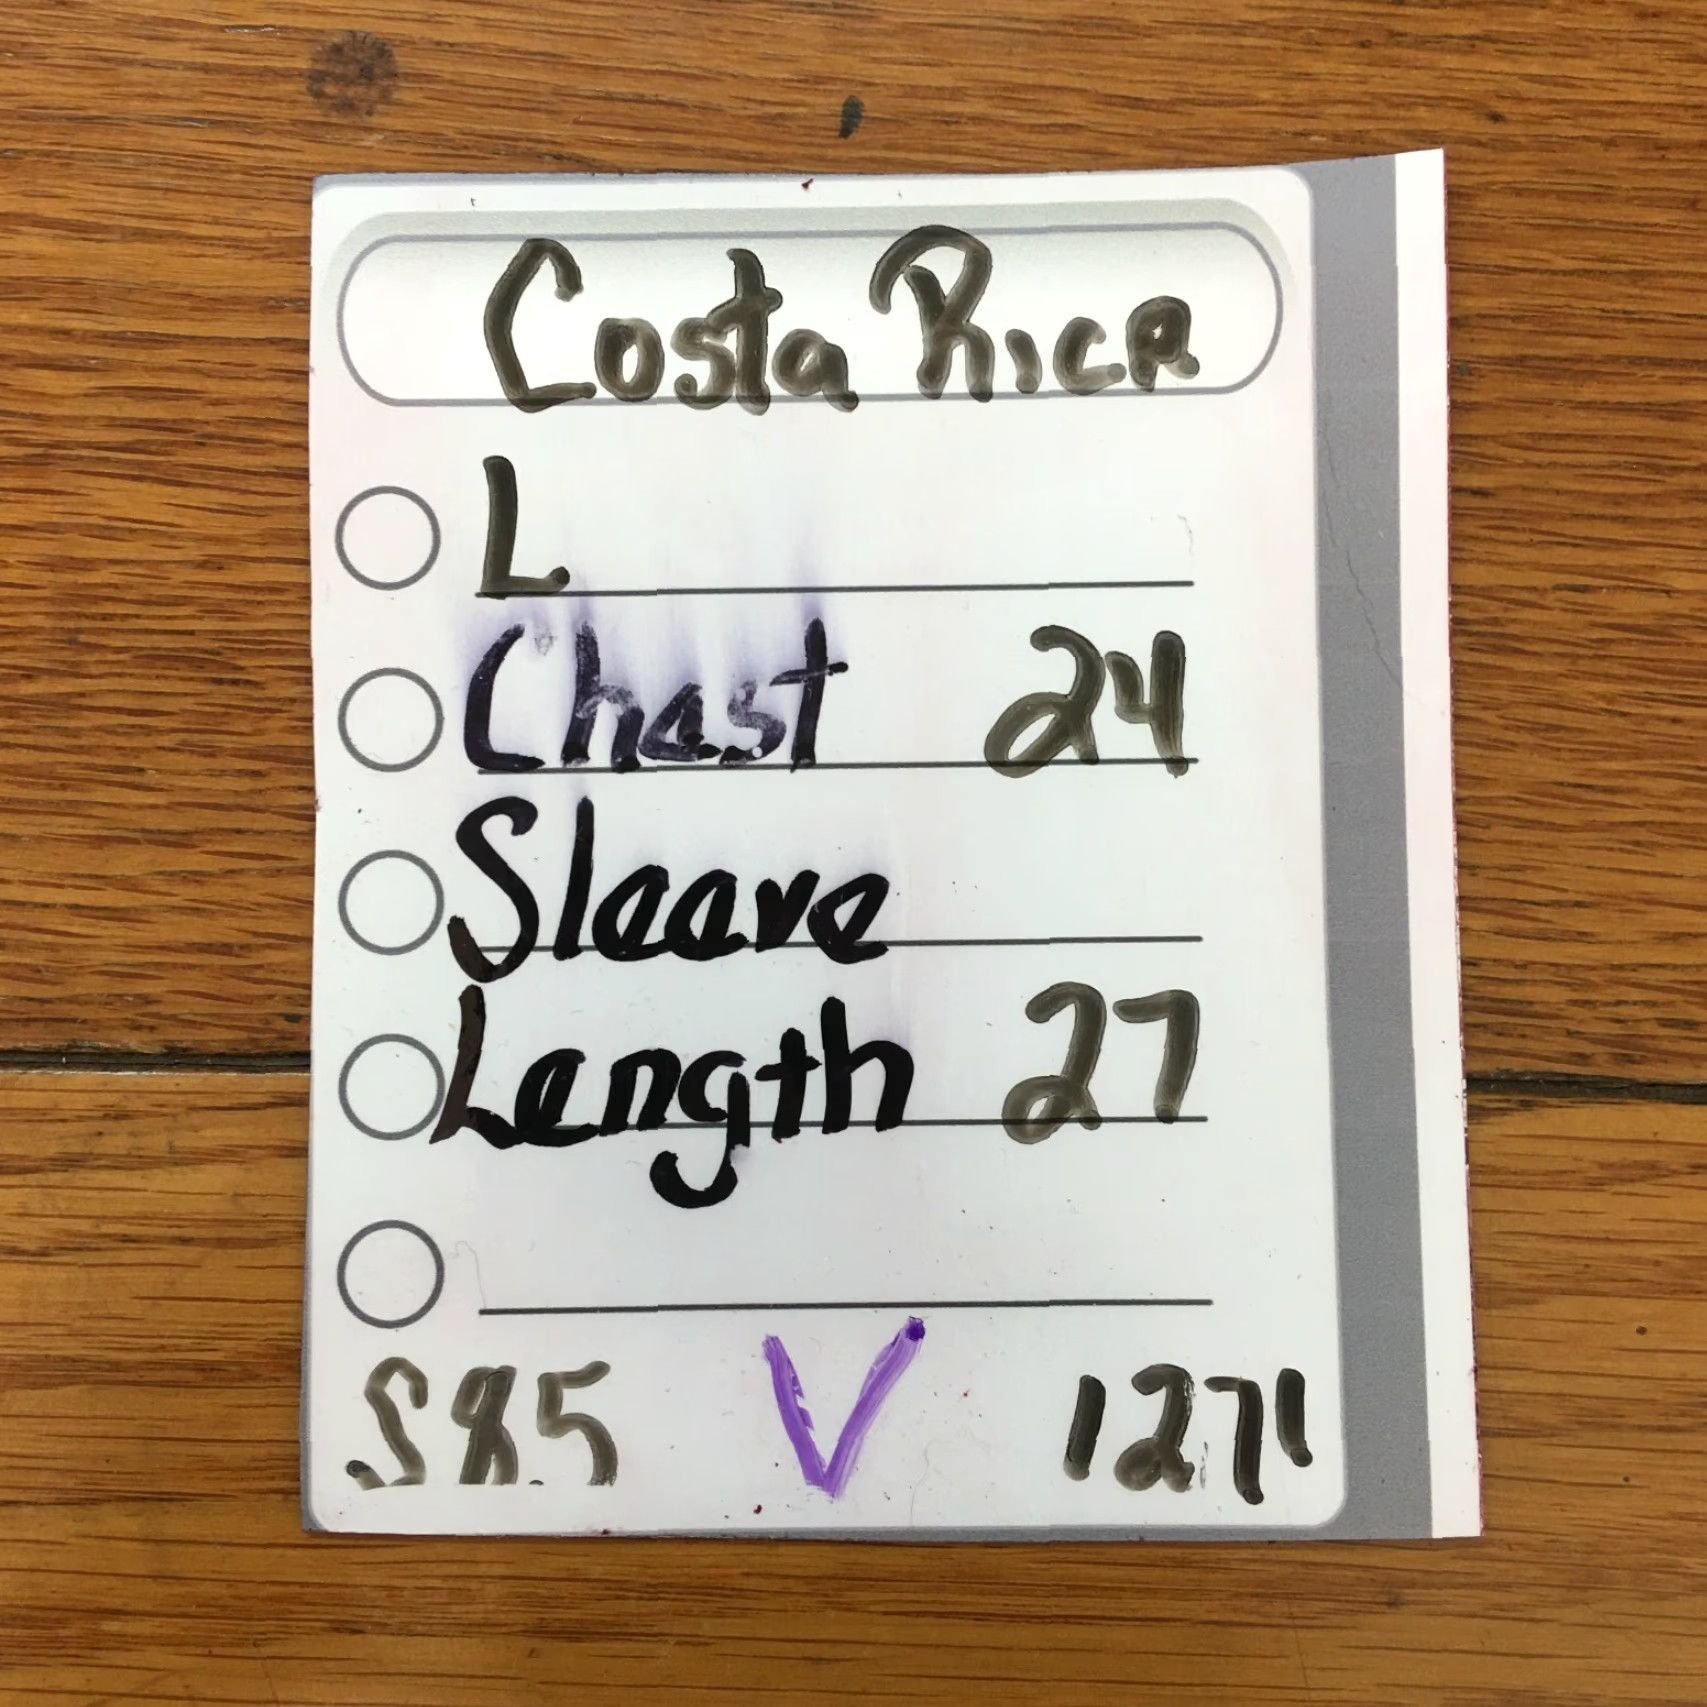 Costa Rica
L
Chest 24
Sleeve
Length 27
S85 V 1271